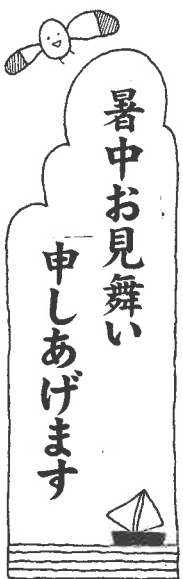 暑中お見舞い
申しあげます